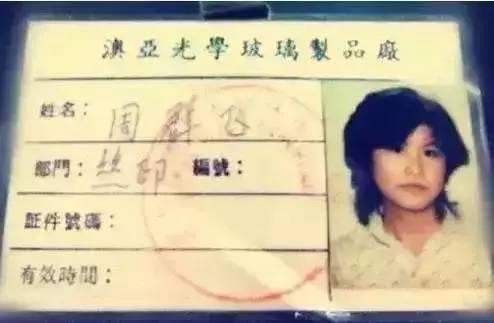 澳亞光學玻璃製品廠
姓名：周群飞
部門：丝印 編號：
証件號碼：
有效時間：